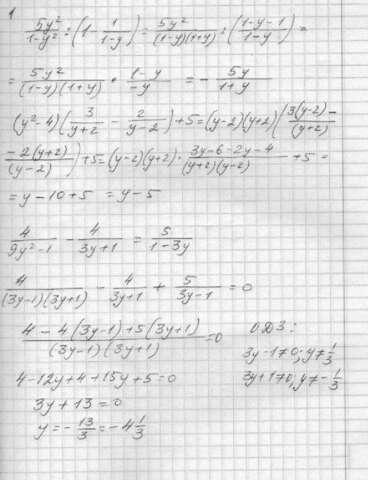 1
5y²/(1-y²) : (1 - 1/(1-y)) = 5y²/((1-y)(1+y)) : ((1-y-1)/(1-y)) =
= 5y²/((1-y)(1+y)) • (1-y)/(-y) = - 5y/(1+y)
(y²-4)(3/(y+2) - 2/(y-2)) + 5 = (y-2)(y+2)(3(y-2)/(y+2) -
- 2(y+2)/(y-2)) + 5 = (y-2)(y+2) · (3y-6-2y-4)/((y+2)(y-2)) + 5 =
= y-10+5 = y-5
4/(9y²-1) - 4/(3y+1) = 5/(1-3y)
4/((3y-1)(3y+1)) - 4/(3y+1) + 5/(3y-1) = 0
(4-4(3y-1)+5(3y+1))/((3y-1)(3y+1)) = 0
ОДЗ:
3y-1≠0; y≠1/3
3y+1≠0; y≠-1/3
4-12y+4+15y+5=0
3y+13=0
y = -13/3 = -4 1/3